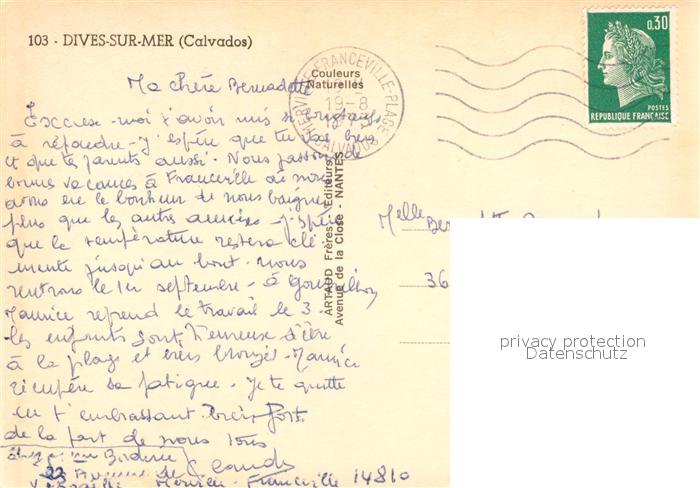 103 - DIVES-SUR-MER (Calvados)
Ma chère Bernadette
Couleurs
Naturelles
MERVILLE-FRANCEVILLE-PLAGE
19-8
CALVADOS
0,30
POSTES
REPUBLIQUE FRANÇAISE
Excuse-moi t'avoir mis si longtemps
à répondre - j'espère que tu vas bien
et que tes parents aussi. Nous passons de
bonnes vacances à Franceville où nous
avons eu le bonheur de nous baigner
plus que les autres années j'espère
que la température restera clé-
mente jusqu'au bout. nous
rentrons le 1er septembre - à
Maurice reprend le travail le 3 -
les enfants sont heureux d'être
à la plage et très bronzés - Maurice
récupère sa fatigue - Je te quitte
en t'embrassant très fort
de la part de nous tous
Claude
Franceville 14810
ARTAUD Frères - Editeurs
Avenue de la Close - NANTES
Melle
36
privacy protection
Datenschutz